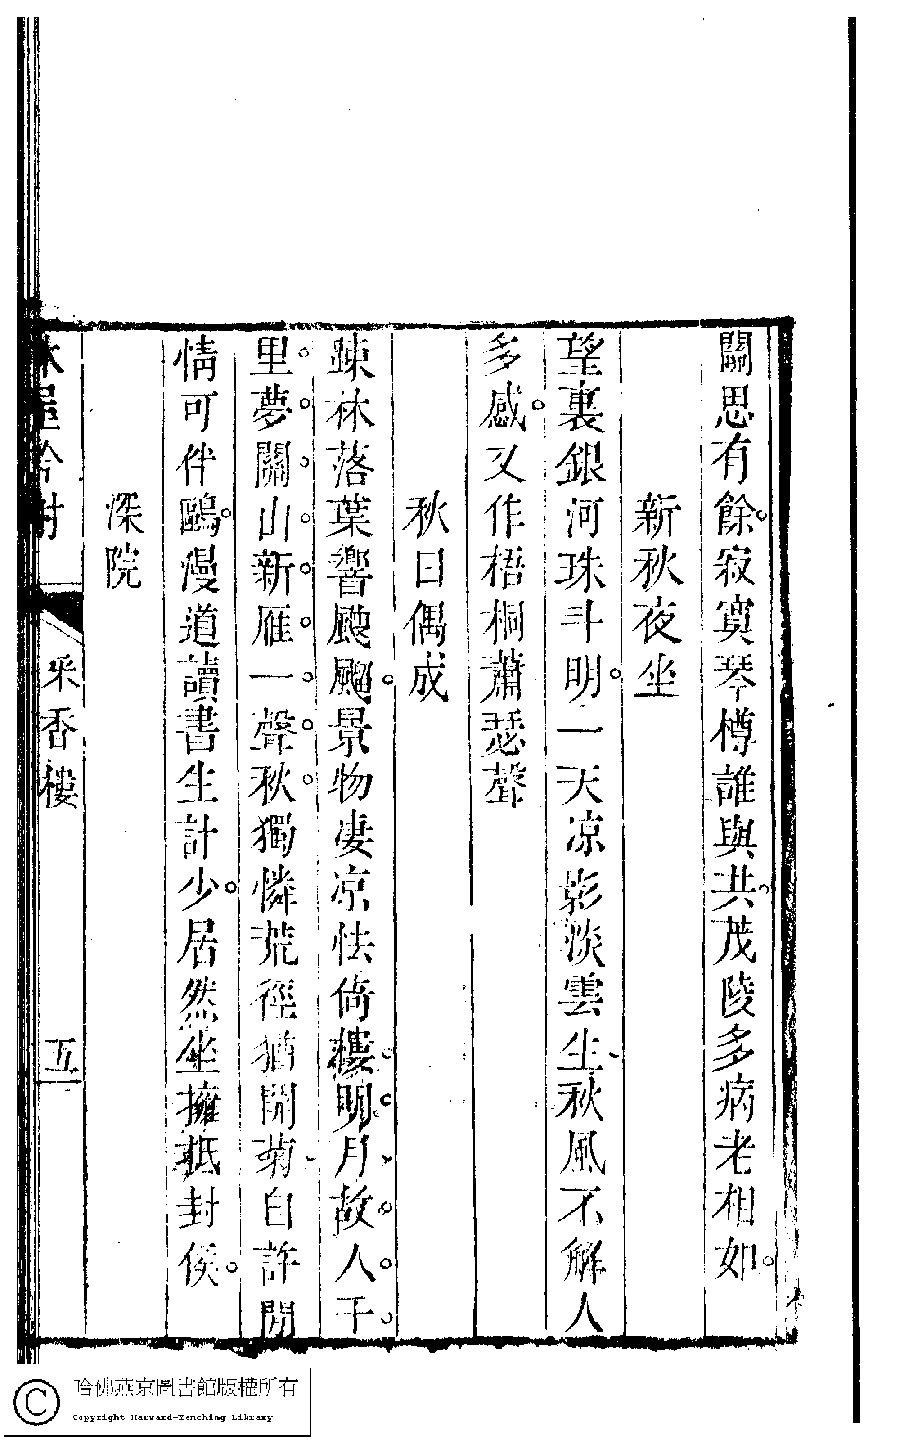 關思有餘寂寞琴樽誰與共茂陵多病老相如
新秋夜坐
望裏銀河珠斗明一天凉影淡雲生秋風不解人
多感又作梧桐蕭瑟聲
秋日偶成
踈林落葉響颼飀景物凄凉怯倚樓明月故人千
里夢關山新雁一聲秋獨憐荒徑猶開菊自許閒
情可伴鷗漫道讀書生計少居然坐擁抵封侯
深院
采香樓 五
哈佛燕京圖書館版權所有
Copyright Harvard-Yenching Library